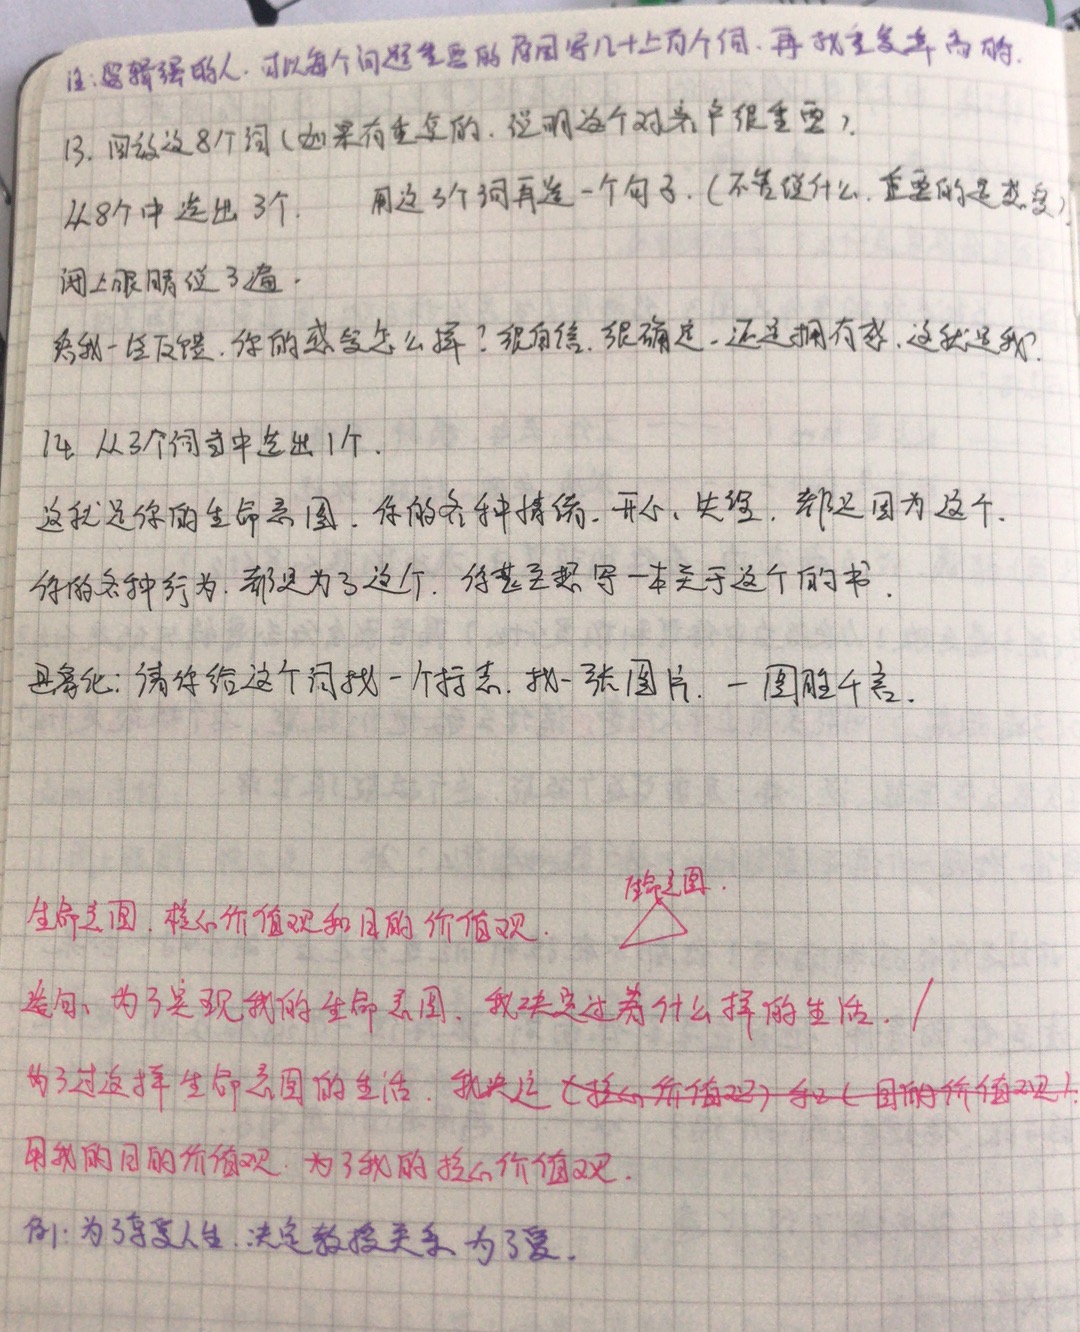 注:逻辑强的人.可以每个问题重要的原因写几十上百个词.再找重复率高的.
13. 回放这8个词(如果有重复的.说明这个对客户很重要).
从8个中选出3个. 用这3个词再造一个句子.(不管说什么.重要的是感受).
闭上眼睛说3遍.
给我一些反馈.你的感受怎么样?很自信.很确定.还是拥有感.这就是我?
14. 从3个词当中选出1个.
这就是你的生命意图.你的各种情绪.开心、失望.都是因为这个.
你的各种行为.都是为了这个.你甚至想写一本关于这个的书.
具象化:请你给这个词找一个标志.找一张图片.一图胜千言.
生命意图.
生命意图.核心价值观和目的价值观.
造句、为了实现我的生命意图.我决定过着什么样的生活.
为了过这样生命意图的生活.我决定(核心价值观)和(目的价值观).
用我的目的价值观.为了我的核心价值观.
例1:为了享受人生.决定教授关系为了爱.